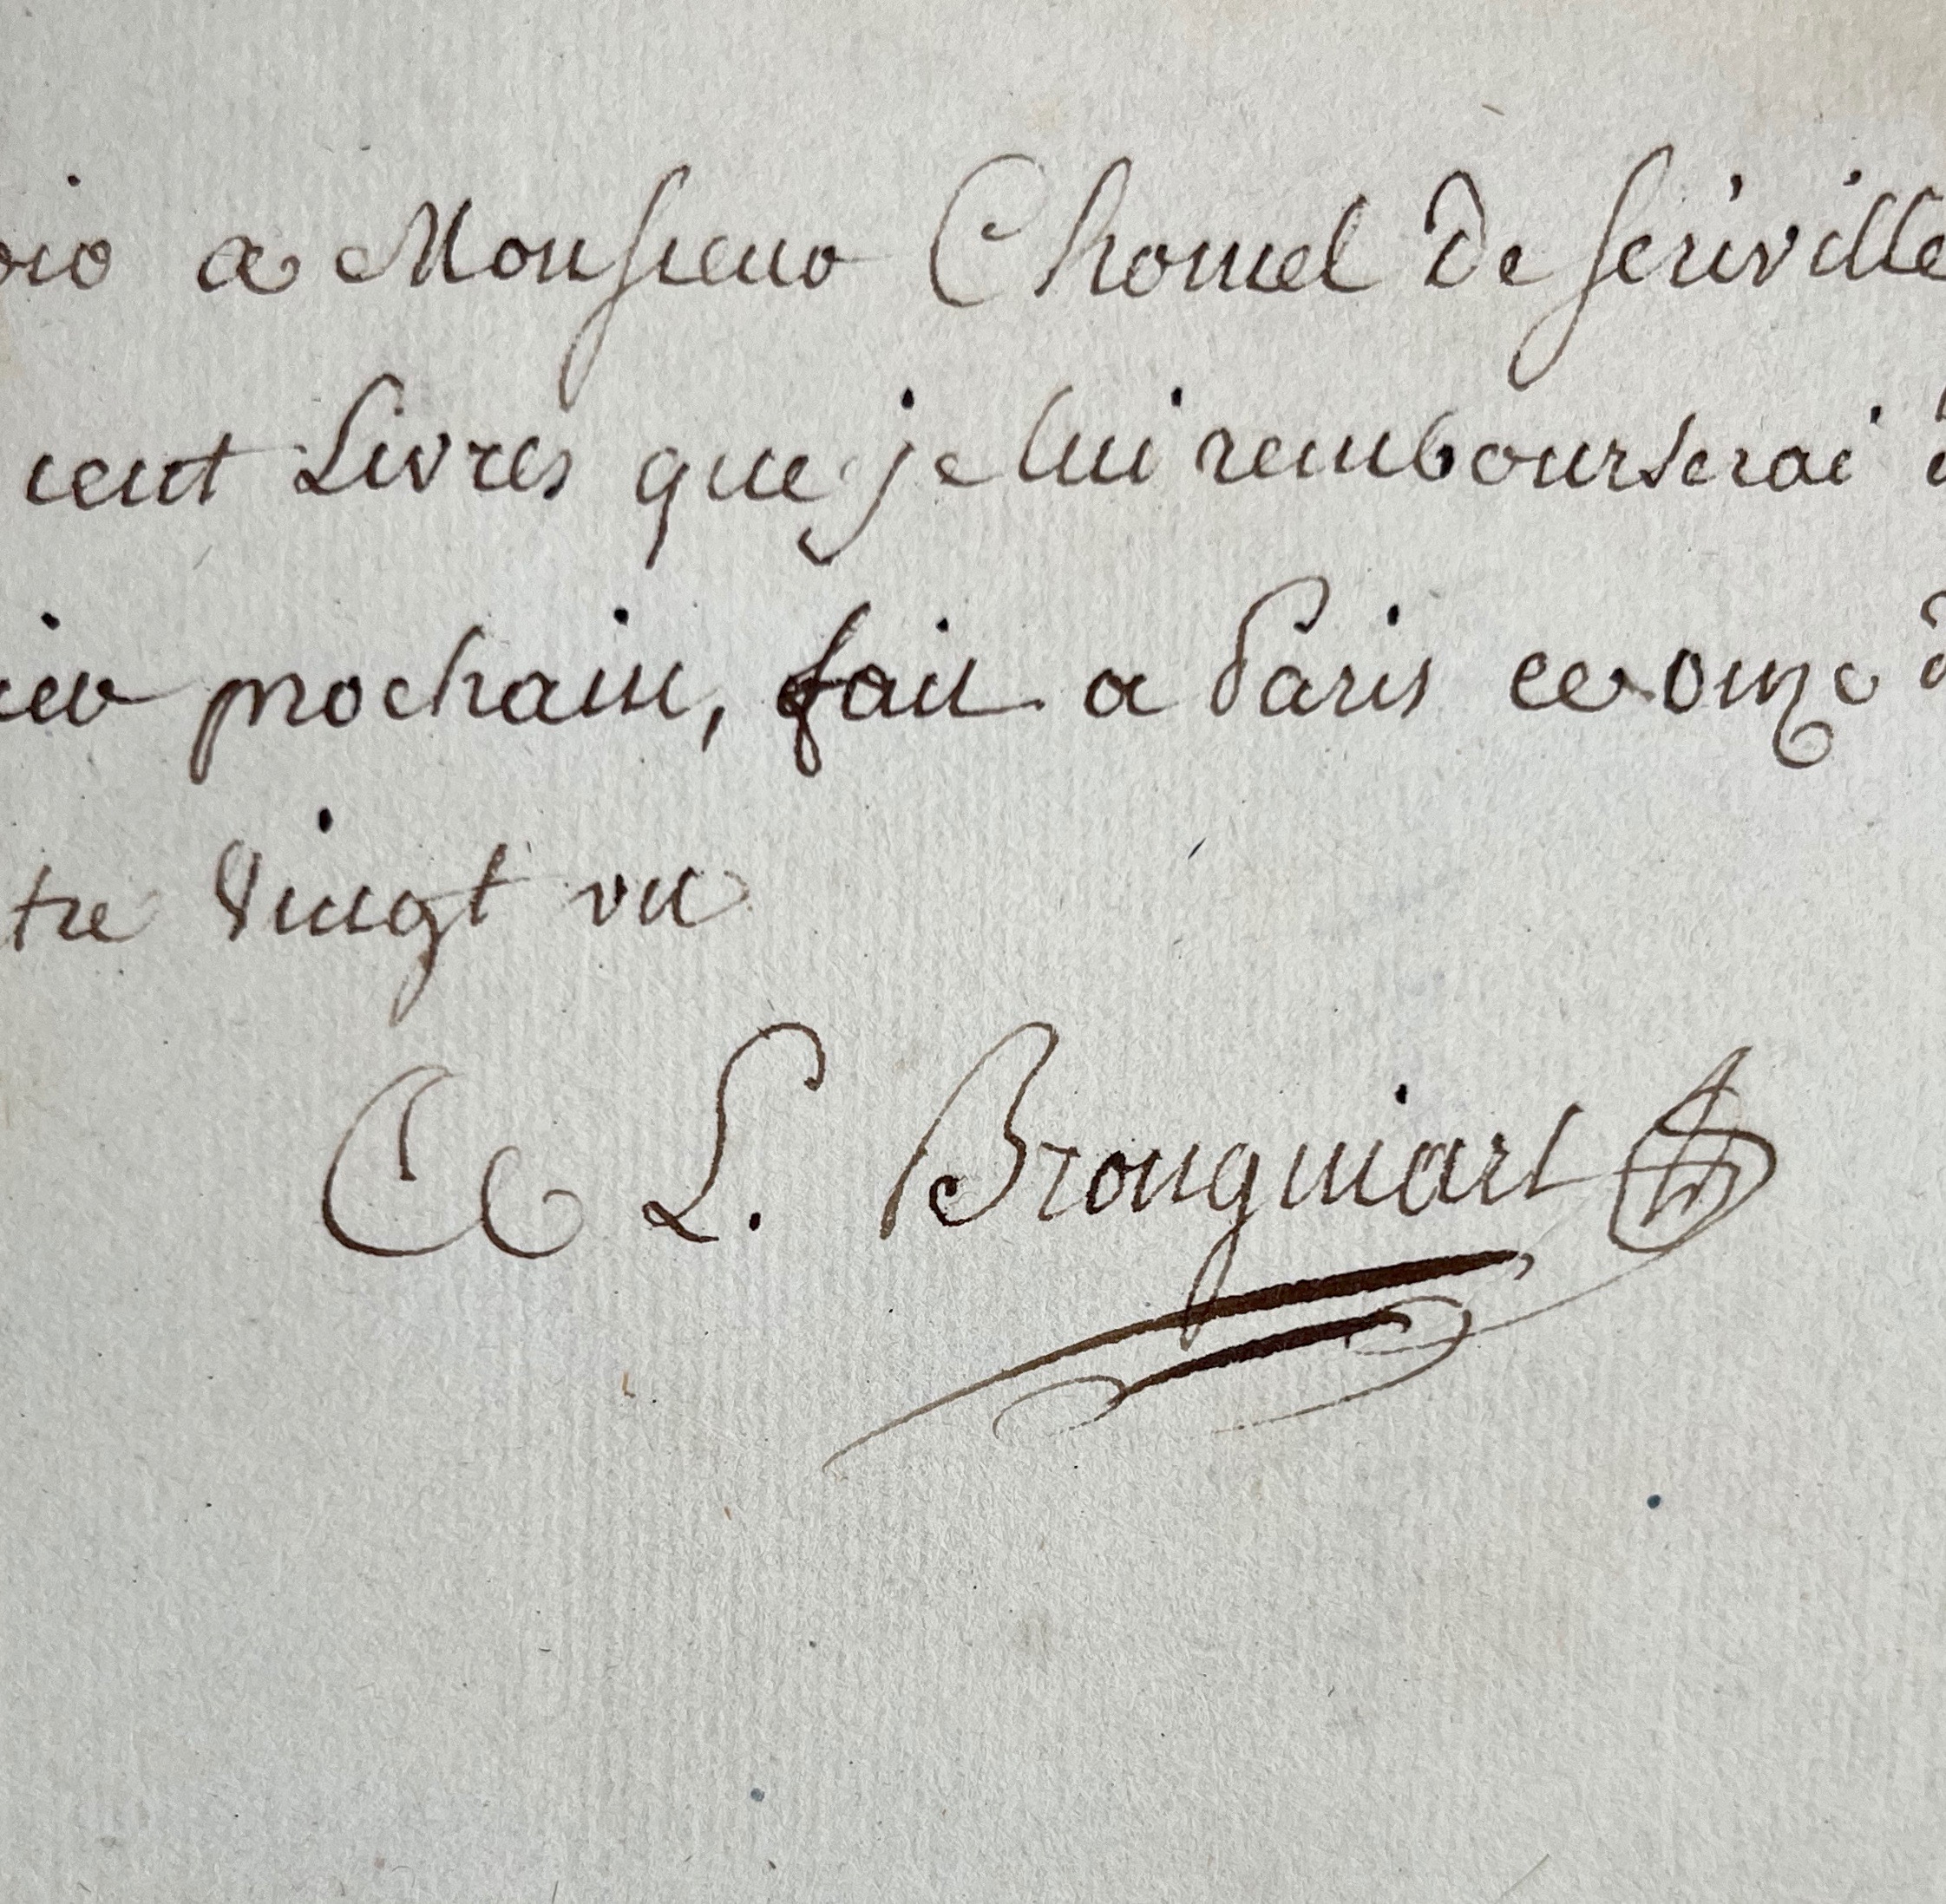 a Monsieur Chomel De Seriville
cent Livres que je lui rembourserai
prochain, fait a Paris ce onze
tre vingt un
L. Brongniart